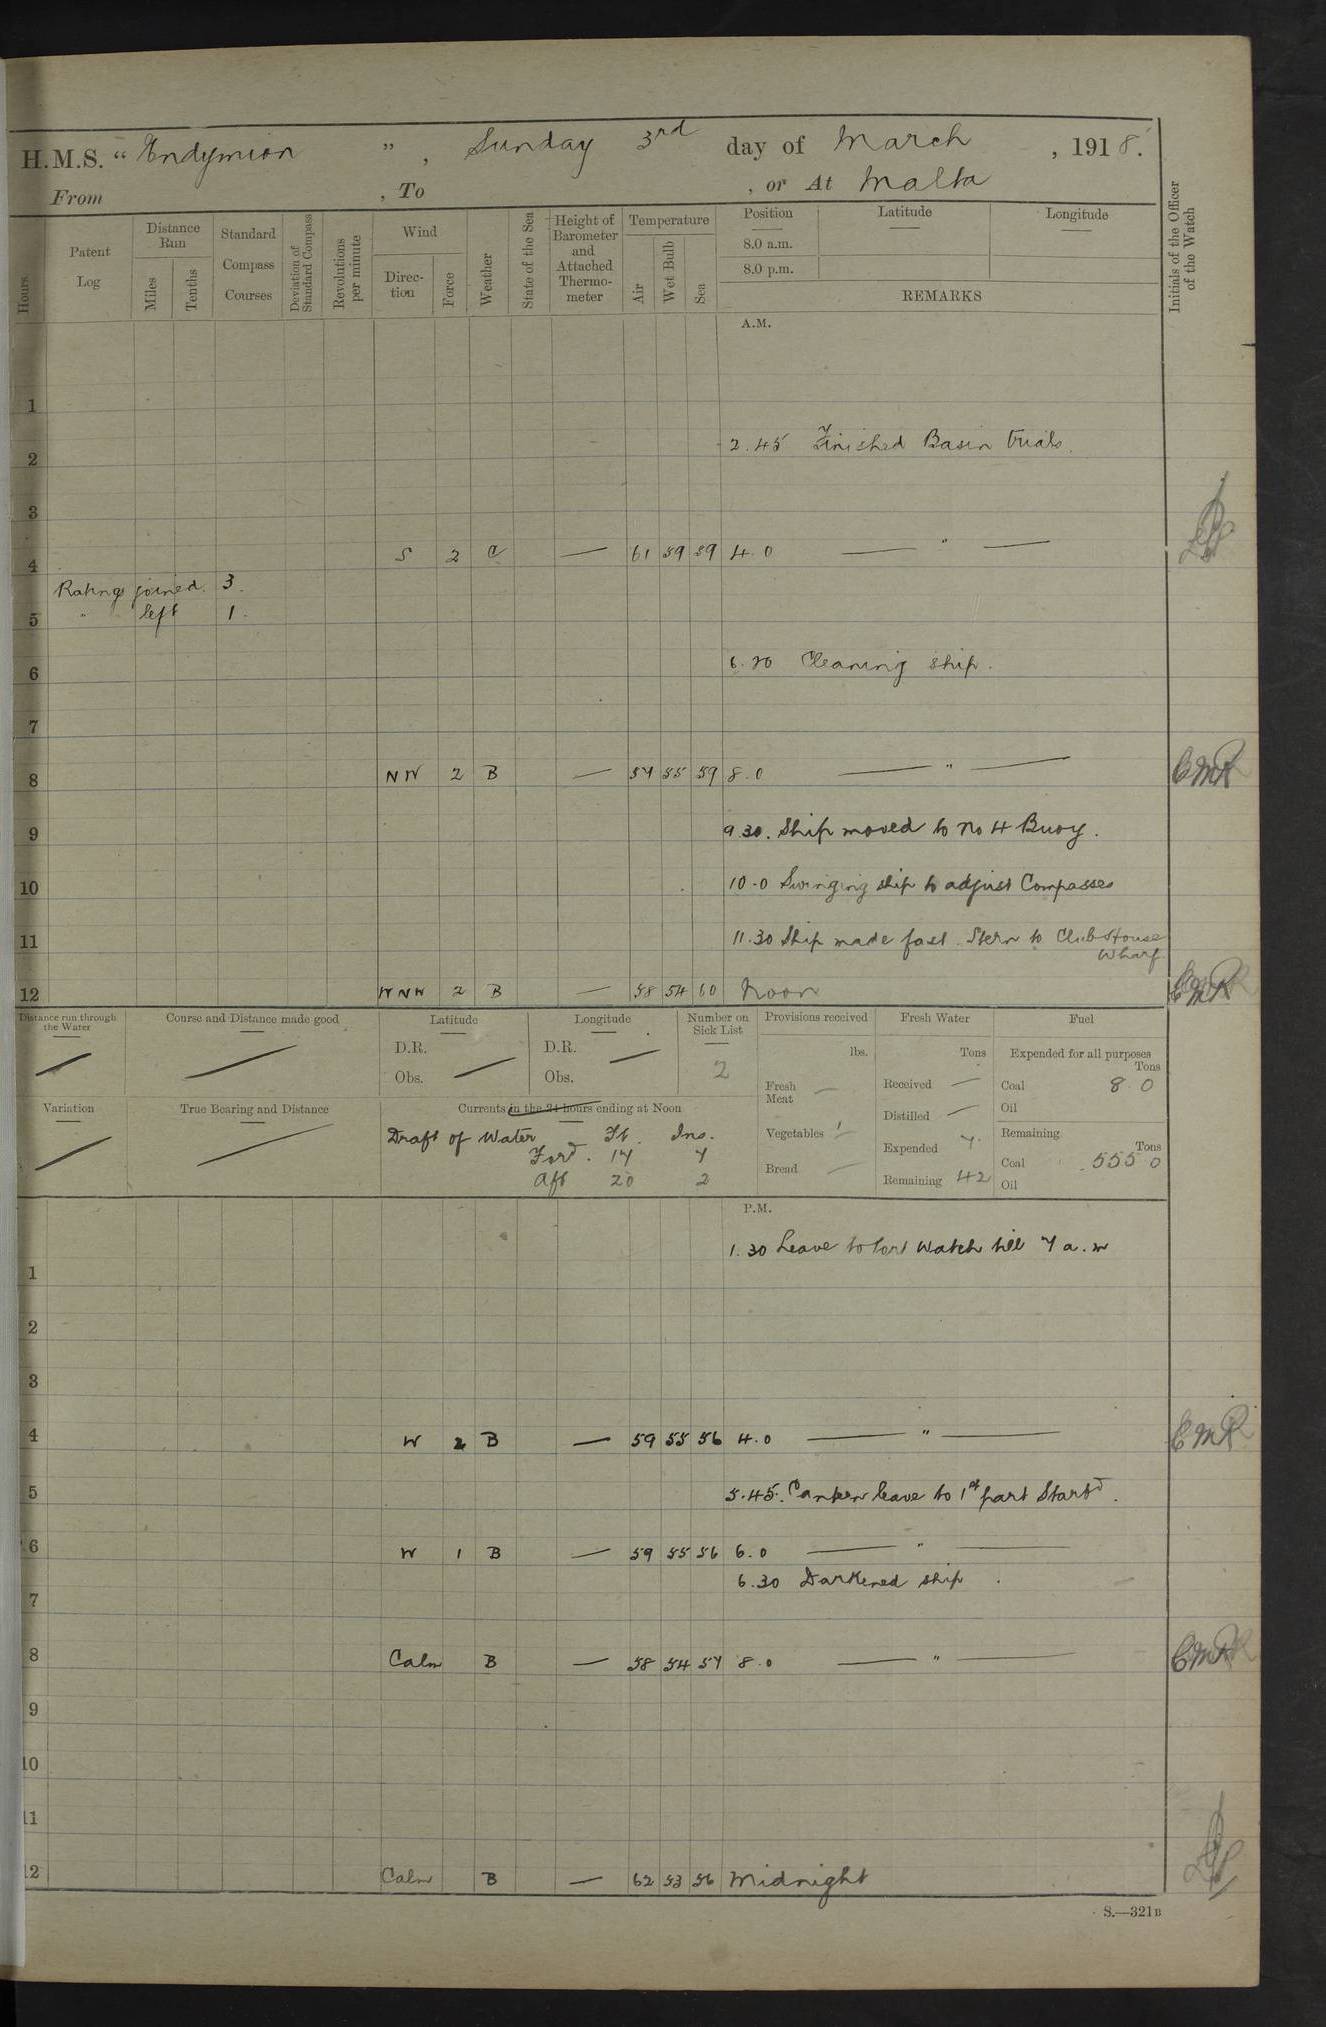 H.M.S. "Endymion", Sunday 3rd day of March, 1918.
From , To , or At Malta
Hours
Patent Log
Distance Run
Miles
Tenths
Standard Compass Courses
Deviation of Standard Compass
Revolutions per minute
Wind
Direction
Force
Weather
State of the Sea
Height of Barometer and Attached Thermometer
Temperature
Air
Wet Bulb
Sea
Position
Latitude
Longitude
8.0 a.m.
8.0 p.m.
REMARKS
Initials of the Officer of the Watch
A.M.
1
2.45 Finished Basin trials.
2
3
4 S 2 C — 61 59 59 4.0 — " —
Ratings joined. 3.
" left 1.
5
6.20 Cleaning ship.
6
7
8 NW 2 B — 57 55 59 8.0 — " — CMR
9 9.30. Ship moved to No 4 Buoy.
10 10.0 Swinging ship to adjust Compasses
11 11.30 Ship made fast. Stern to Club House
Wharf
12 WNW 2 B — 58 54 60 Noon CMR
Distance run through the Water
Course and Distance made good
Latitude
D.R.
Obs.
Longitude
D.R.
Obs.
Number on Sick List
2
Provisions received
lbs.
Fresh Meat —
Vegetables —
Bread —
Fresh Water
Tons
Received —
Distilled —
Expended 7.
Remaining 42
Fuel
Expended for all purposes
Tons
Coal 8 0
Oil
Remaining
Tons
Coal 555 0
Oil
Variation
True Bearing and Distance
Currents in the 24 hours ending at Noon
Draft of Water Ft. Ins.
Ford. 17 7
Aft 20 2
P.M.
1.30 Leave to Port Watch till 7 a.m
1
2
3
4 W 2 B — 59 55 56 4.0 — " — CMR
5 5.45. Canteen leave to 1st part Starbd.
6 W 1 B — 59 55 56 6.0 — " —
6.30 Darkened ship.
7
8 Calm B — 58 54 57 8.0 — " — CMR
9
10
11
12 Calm B — 62 53 56 Midnight
S.—321B